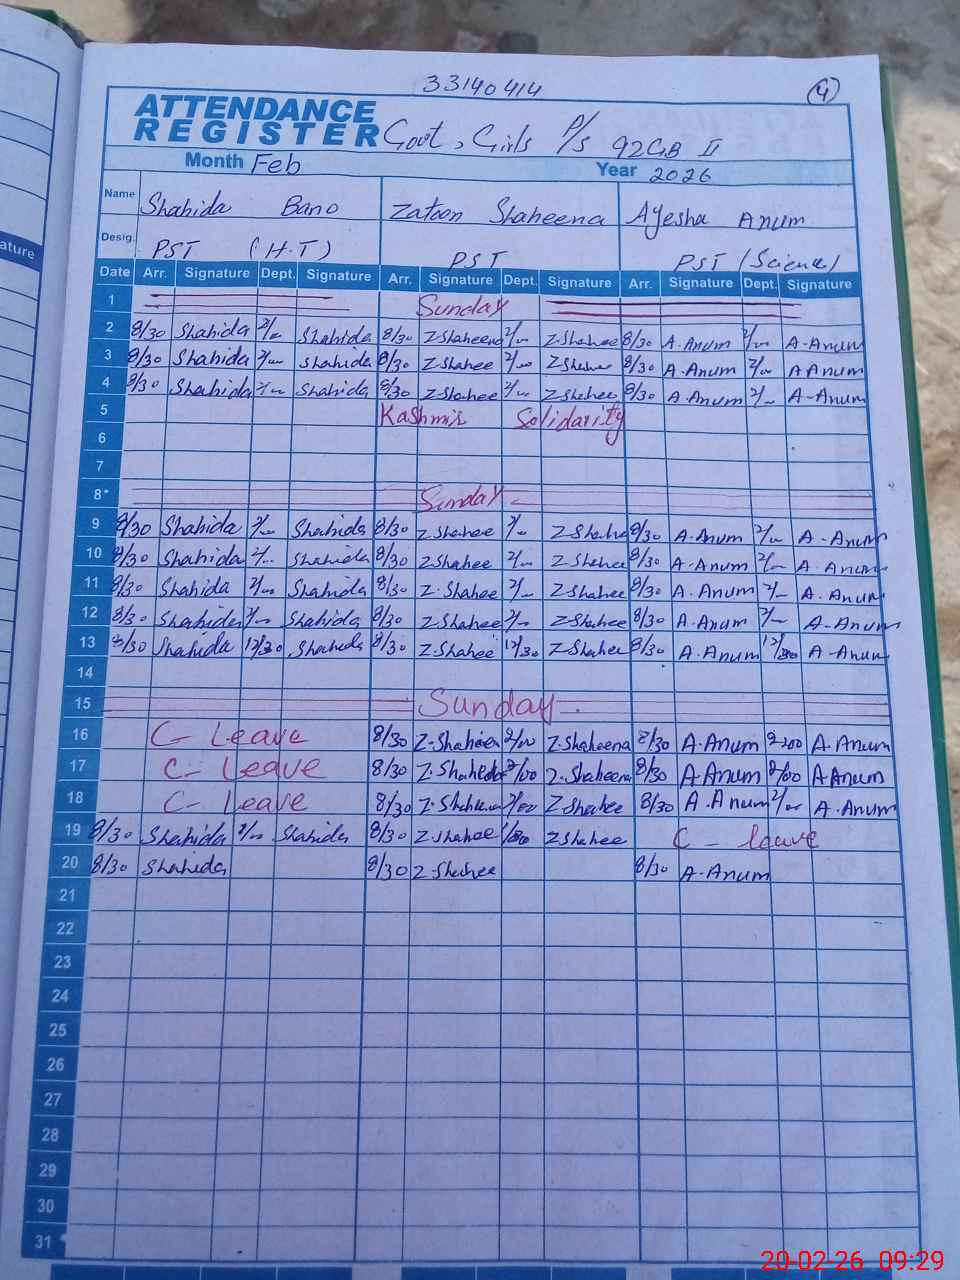 33140414
4
ATTENDANCE
REGISTER Govt, Girls P/S 92GB II
Month Feb Year 2026
Name Shahida Bano Zatoon Shaheena Ayesha Anum
Desig. PST (H.T) PST PST (Science)
Date Arr. Signature Dept. Signature Arr. Signature Dept. Signature Arr. Signature Dept. Signature
1 Sunday
2 8/30 Shahida 2/00 Shahida 8/30 Z Shaheena 2/00 Z-Shahee 8/30 A.Anum 2/00 A-Anum
3 8/30 Shahida 2/00 Shahida 8/30 Z.Shahee 2/00 Z Shahee 8/30 A.Anum 2/00 A Anum
4 8/30 Shahida 2/00 Shahida 8/30 Z.Shahee 2/00 Z Shahee 8/30 A.Anum 2/00 A-Anum
5 Kashmir Solidarity
6
7
8 Sunday
9 8/30 Shahida 2/00 Shahida 8/30 Z.Shahee 2/00 Z Shahee 8/30 A.Anum 2/00 A-Anum
10 8/30 Shahida 2/00 Shahida 8/30 Z.Shahee 2/00 Z Shahee 8/30 A.Anum 2/00 A.Anum
11 8/30 Shahida 2/00 Shahida 8/30 Z.Shahee 2/00 Z Shahee 8/30 A.Anum 2/00 A.Anum
12 8/30 Shahida 2/00 Shahida 8/30 Z.Shahee 2/00 Z Shahee 8/30 A.Anum 2/00 A-Anum
13 8/30 Shahida 12/30 Shahida 8/30 Z.Shahee 12/30 Z Shahee 8/30 A.Anum 12/30 A-Anum
14
15 Sunday
16 C- Leave 8/30 Z-Shaheena 2/00 Z.Shaheena 8/30 A.Anum 2200 A.Anum
17 C- Leave 8/30 2/00 Z.Shaheena 8/30 A Anum 2/00 A Anum
18 C- Leave 8/30 2/00 Z Shahee 8/30 A.Anum 2/00 A.Anum
19 8/30 Shahida 2/00 Shahida 8/30 Z.Shahee Z Shahee C- leave
20 8/30 Shahida 8/30 Z-Shahee 8/30 A-Anum
21
22
23
24
25
26
27
28
29
30
31
ature
20-02-26 09:29